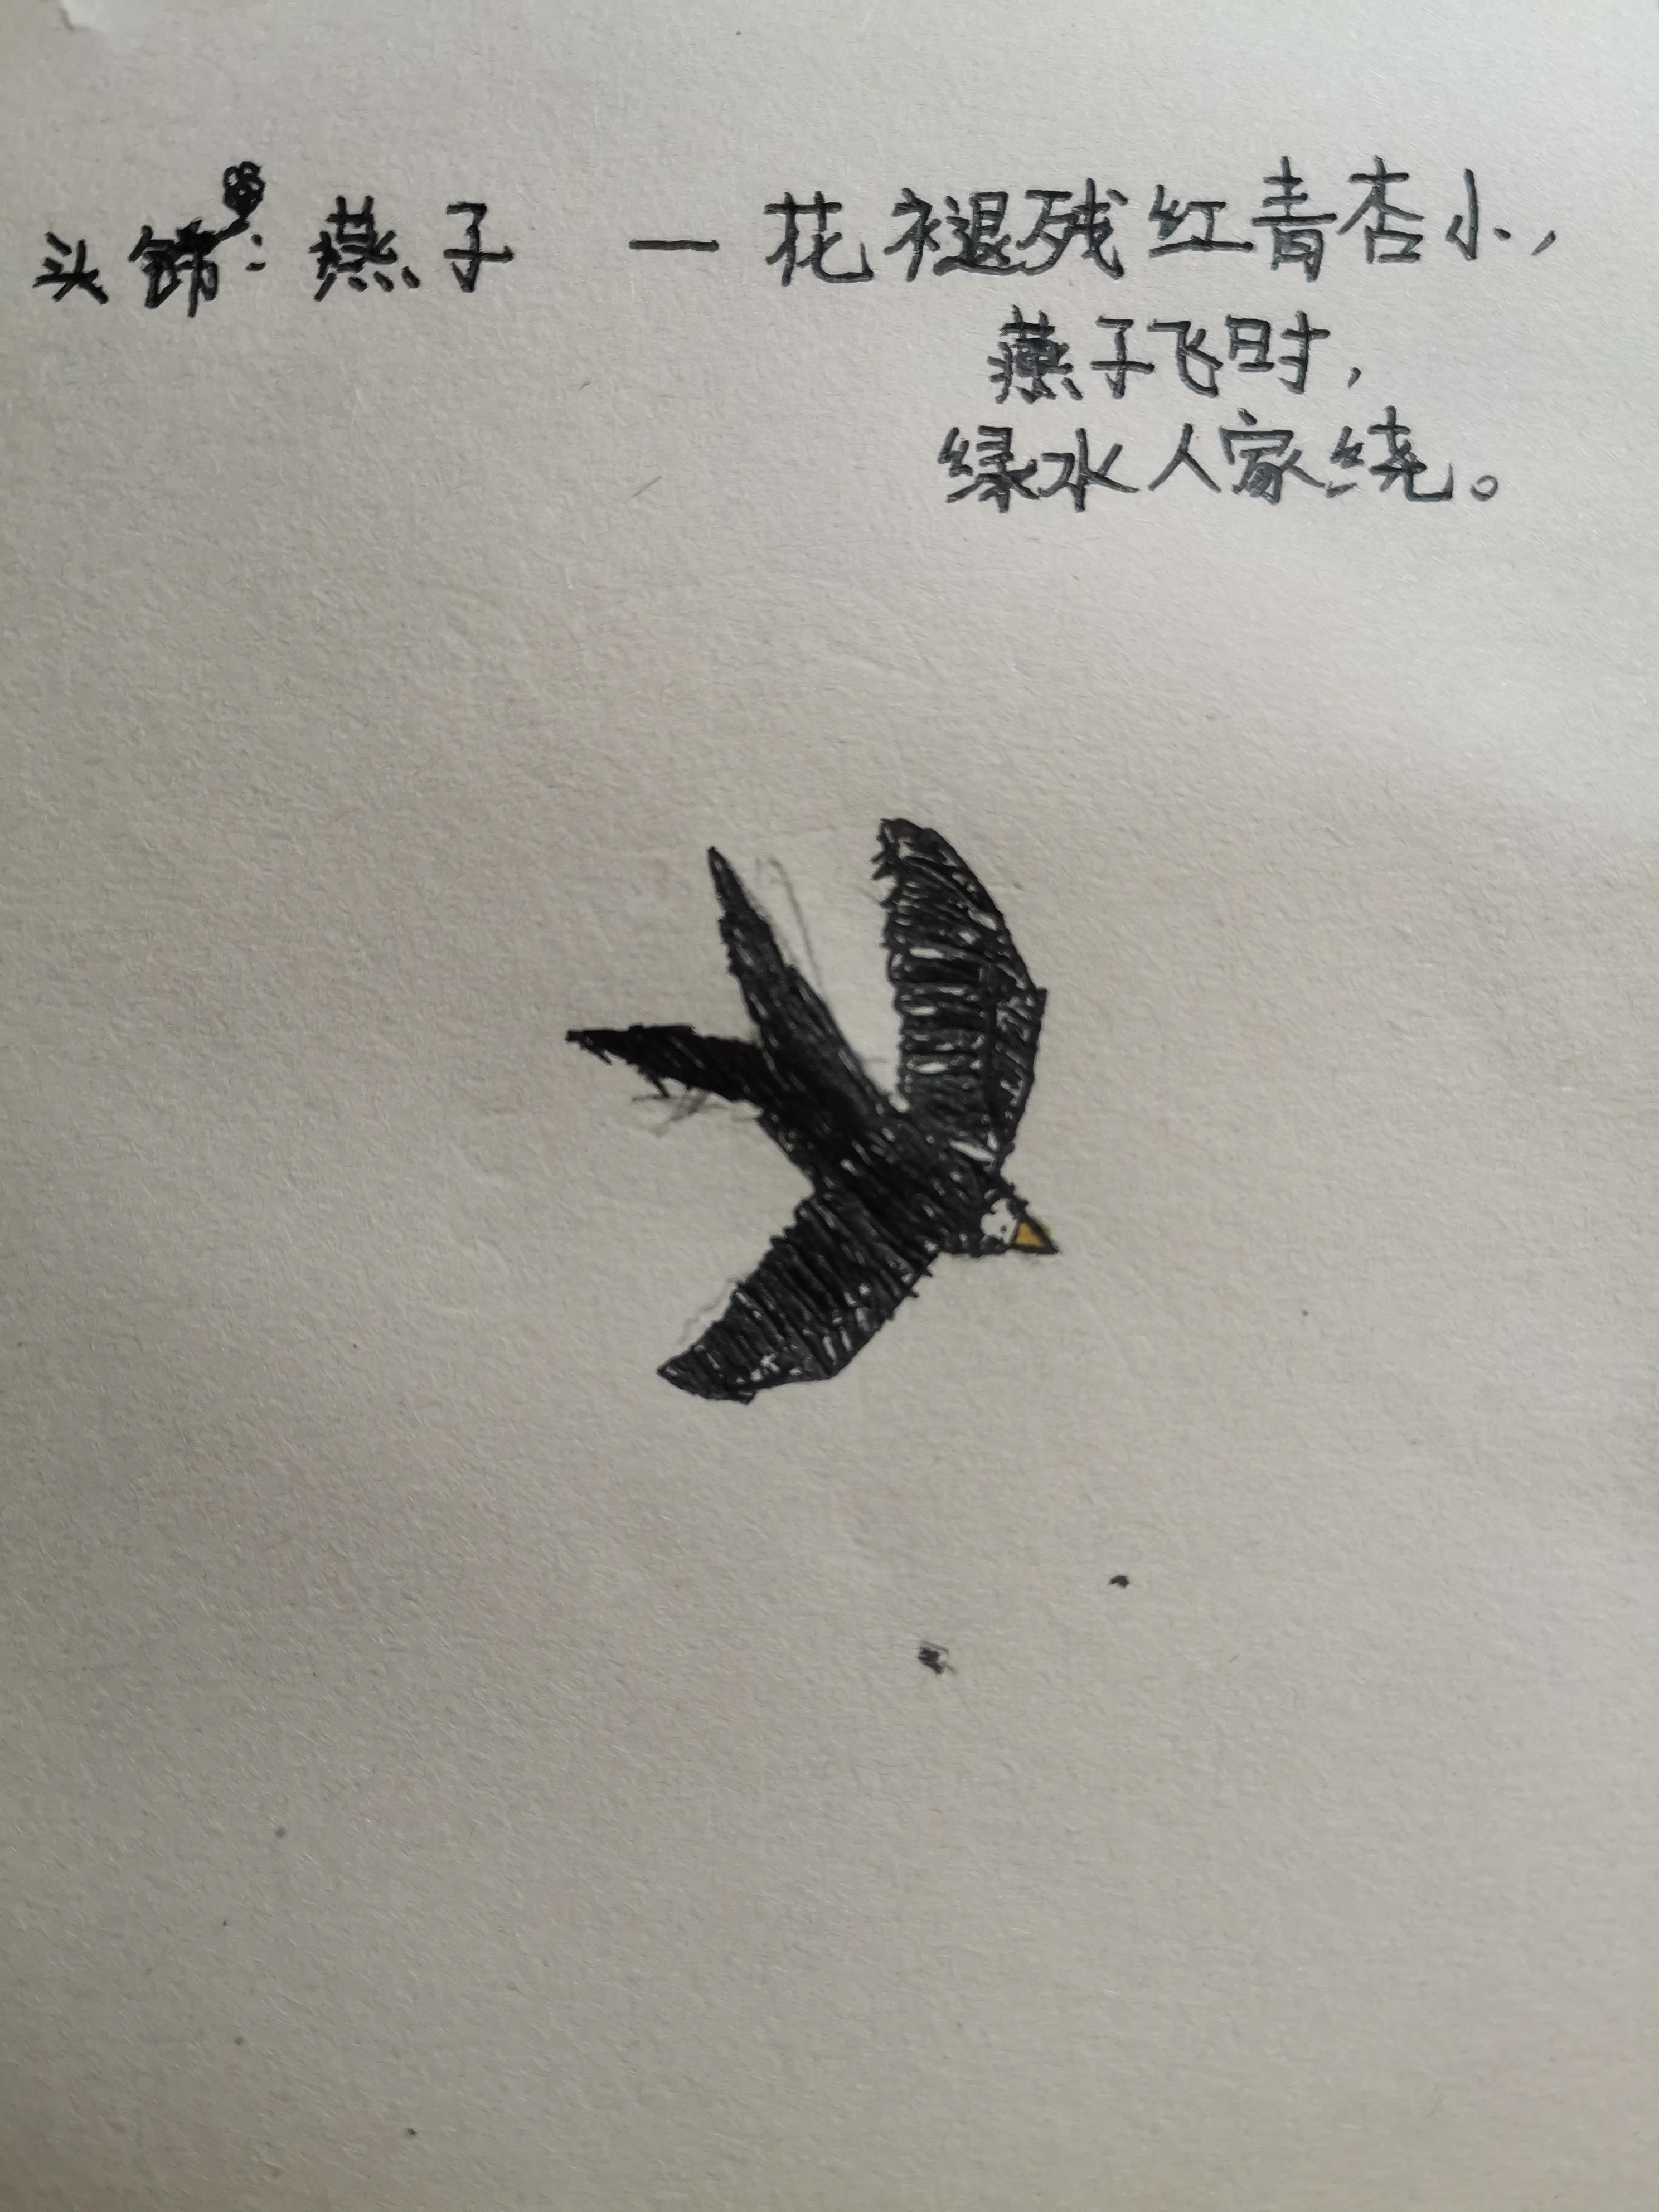 头饰：燕子 — 花褪残红青杏小，
燕子飞时，
绿水人家绕。